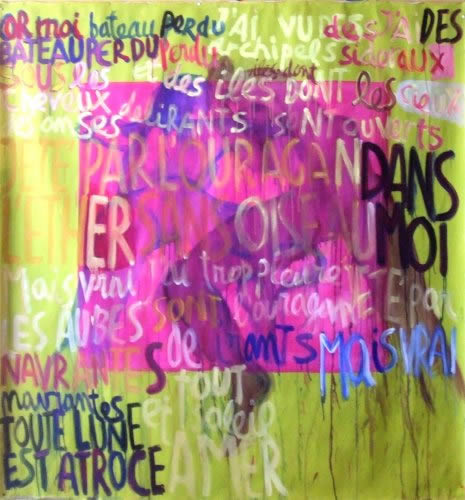 OR moi bateau perdu J'AI VU des J'AI DES
BATEAU PERDU perdu archipels sideraux
SOUS les ET des îles DONT les cieux
cheveux
des anses délirants SONT ouverts
JETÉ PAR L'OURAGAN DANS
L'ÉTHER SANS OISEAU MOI
Mais vrai J'ai trop pleuré
LES AUBES SONT l'ouragan
NAVRANTES de MAIS VRAI
navrantes TOUT
TOUTE LUNE et soleil
EST ATROCE AMER